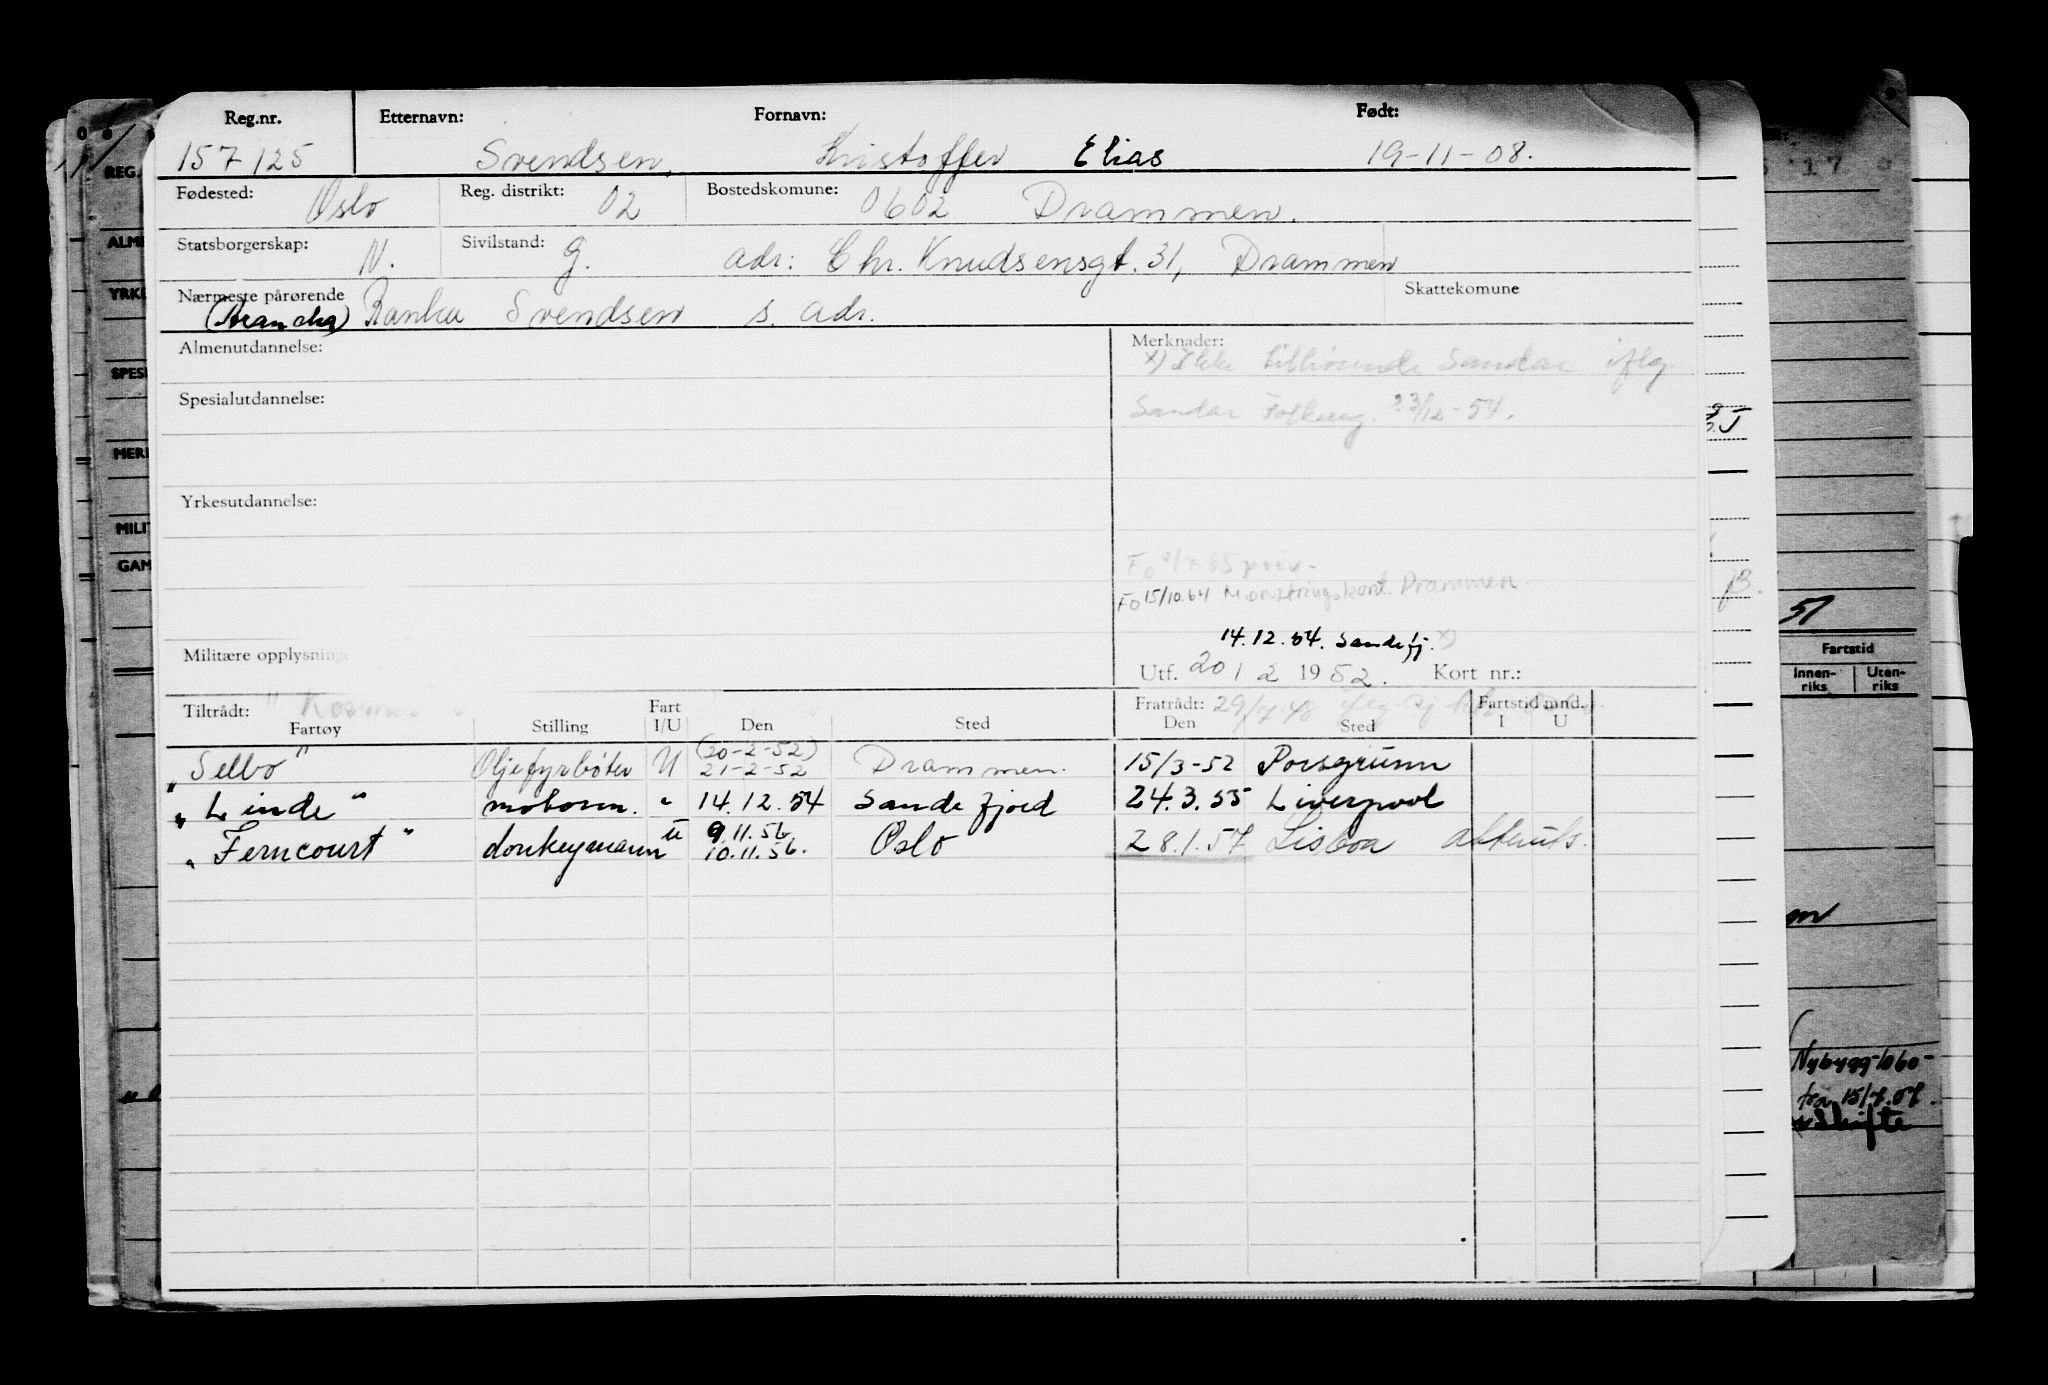 Reg.nr. Etternavn: Fornavn: Født:
157125 Svendsen, Kristoffer Elias 19-11-08.
Fødested: Oslo Reg. distrikt: 02 Bostedskomune: 0602 Drammen.
Statsborgerskap: N. Sivilstand: g. adr: Chr. Knudsensgt. 31, Drammen
Nærmeste pårørende Skattekomune
(Brancka) Ranka Svendsen s. adr.
Almenutdannelse: Merknader:
x) Ikke tilhørende Sandar iflg
Spesialutdannelse: Sandar Folkereg. 23/12-54.
Yrkesutdannelse:
Fo 65 priv.
Fo 15/10.64 Mønstringskont. Drammen.
14.12.54. Sandefj. x)
Militære opplysninge Utf. 20/2 1952. Kort nr.:
Tiltrådt: Fart Fratrådt: 29/ Fartstid mnd.
Fartøy Stilling I/U Den Sted Den Sted I U
(20-2-52)
"Selbo" Oljefyrbøter U 21-2-52 Drammen. 15/3-52 Porsgrunn
"Linde" motorm. " 14.12.54 Sandefjord 24.3.55 Liverpool
9.11.56
"Ferncourt" donkeymann U 10.11.56. Oslo 28.1.57 Lisboa
REG.
ALM
YRKE
SPES
MER
MILIT
GAM
17
51
Fartstid
Innen-riks Uten-riks
Nybygg-1060-
fra 15/
Skifte